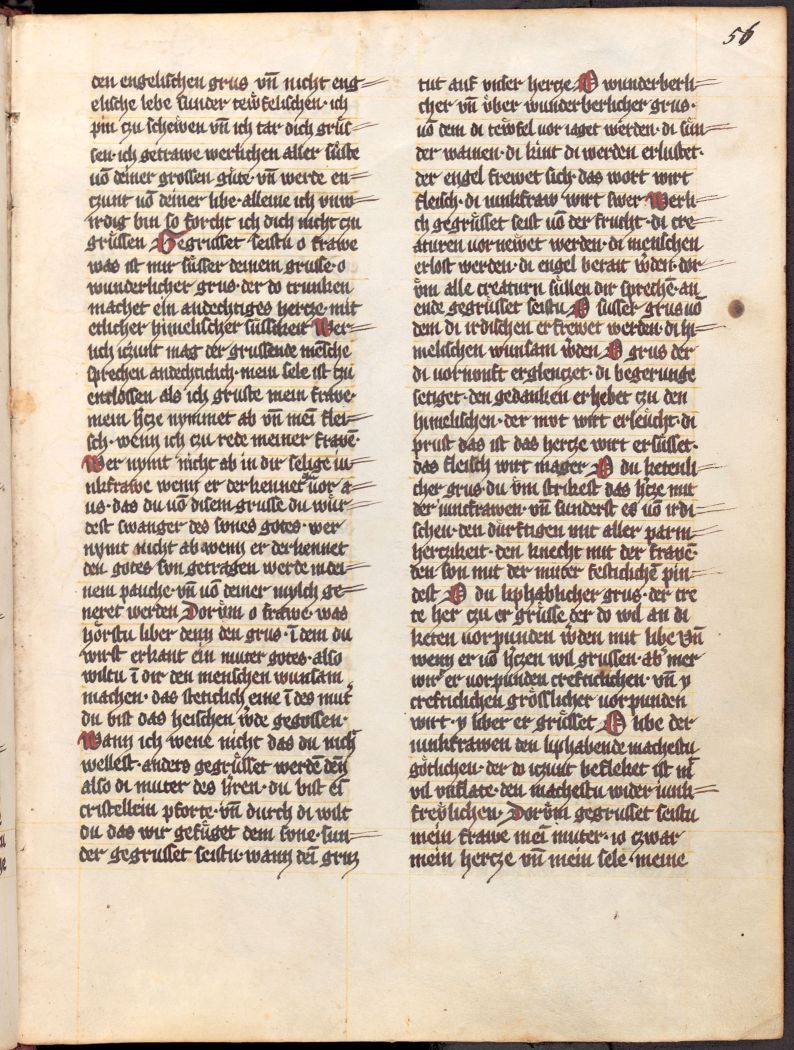 56
den engelischen grus vn̄ nicht eng
elische lebe sunder tewfelischen· ich
pin czu scheiven vn̄ ich tar dich grus
sen· ich getrawe werlichen aller suste
uō deiner grossen gute· vn̄ werde en
czunt uō deiner libe· alleine ich vnw
irdig bin so forcht ich dich nicht czu
grussen Gegrusset seistu o frawe
was ist mir susser deinem grusse· o
wunderlicher grus· der do trunken
machet ein andechtiges hercze· mit
etlicher himelischer sussikeit Wer
lich iczunt mag der grussende mēsche
sprechen andechticlich· mein sele ist tzu
entlossen als ich gruste mein frawe·
mein hcze nymmet ab vn̄ mei flei
sch· wenn ich czu rede meiner frawē·
Wer nymt nicht ab in dir selige iu
nkfrawe wenn er derkennet uor a
us· das du uō disem grusse du wur
dest swanger des sones gotes· wer
nymt nicht ab wenn er derkennet
den gotes son getragen werde in dei
nem pauche· vn̄ uō deiner mylch ge
neret werden Dorum o frawe· was
horstu liber denn den grus· ī dem du
wirst erkant ein muter gotes· also
wiltu ī dir den menschen wunsam
machen· das steticlich eine ī des mut
du bist das heischen wde gegossen·
Wann ich wene nicht das du nich
wellest· anders gegrusset werdē dēn
also di muter des hren· du bist eī
cristellein pforte· vn̄ durch di wilt
du das wir gefuget dem sone· sun
der gegrusset seistu· wann deī grus
tut auf vnser hercze O wunderberli
cher vn̄ vber wunderberlicher grus·
uō dem di tewfel uor iaget werden· di sun
der wainen· di kint di werden erlustet·
der engel frewet sich· das wort wirt
fleisch· di iunkfraw wirt swer Werli
ch gegrusset seist uō der frucht· di cre
aturen uornewet werden· di menschen
erlost werden· di engel berait wden· dor
vm alle creaturn sullen dir sprechē· an
ende gegrusset seistu O susser grus uō
dem di irdischen erfrewet werden· di hi
melischen wunsam wden O grus der
di uornunft erglenczet· di begerunge
setiget· den gedanken erhebet czu den
himelischen· der mvt wirt erleucht· di
prust das ist das hercze wirt ersusset·
das fleisch wirt mager O du ketenli
cher grus· du vm strikest das hcze mit
der iuncfrawen· vn̄ sunderst es uō irdi
schen· den durftigen mit aller parm
herczikeit· den knecht mit der frawē·
den son mit der muter festiclichē pin
dest O du liphablicher grus· der tre
te her czu er grusse der do wil an di
keten uorpunden wden mit libe Vn̄
wenn er uō hczen wil grussen· ab mer
wir er uorpunden crefticlichen· vn̄ y
crefticlichen grosslicher uorpunden
wirt· y liber er grusset O libe der
iunkfrawen den liphabende machestu
gotlichen· der do iczunt beflehet ist m̄
vil vnflate· den machestu wider iunk
freylichen· Dorum gegrusset seistu
mein frawe mei muter· io czwar
mein hercze vn̄ mein sele· meine